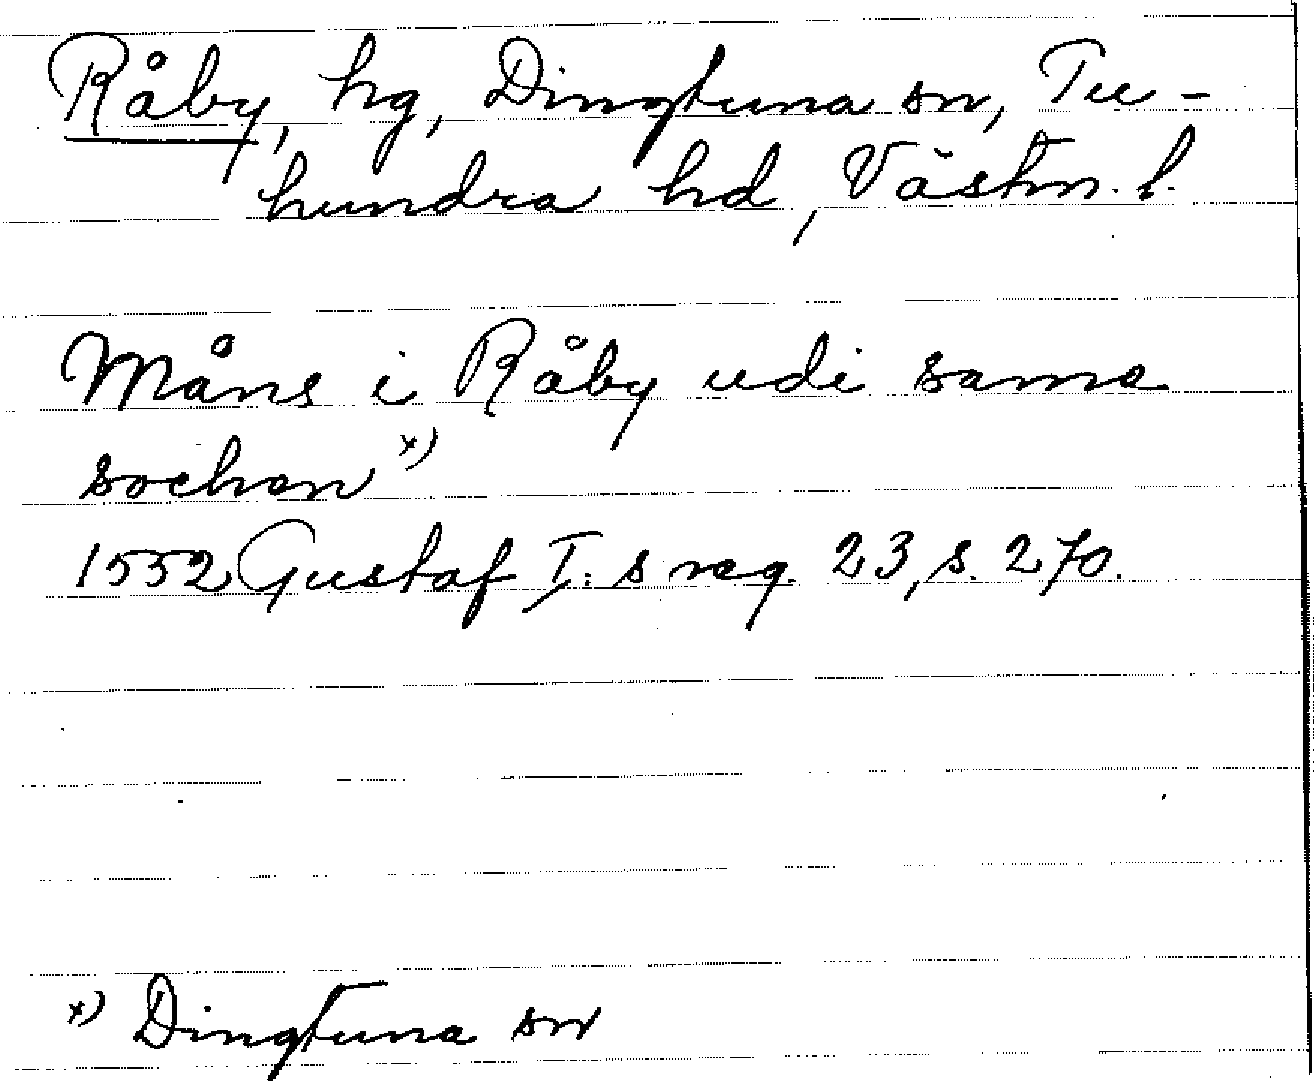 Råby, hg, Dingtuna sn, Tu-
hundra hd, Västm. l.
Måns i Råby udi sama
sochen x)
1552 Gustaf I:s reg. 23, s. 270.
x) Dingtuna sn